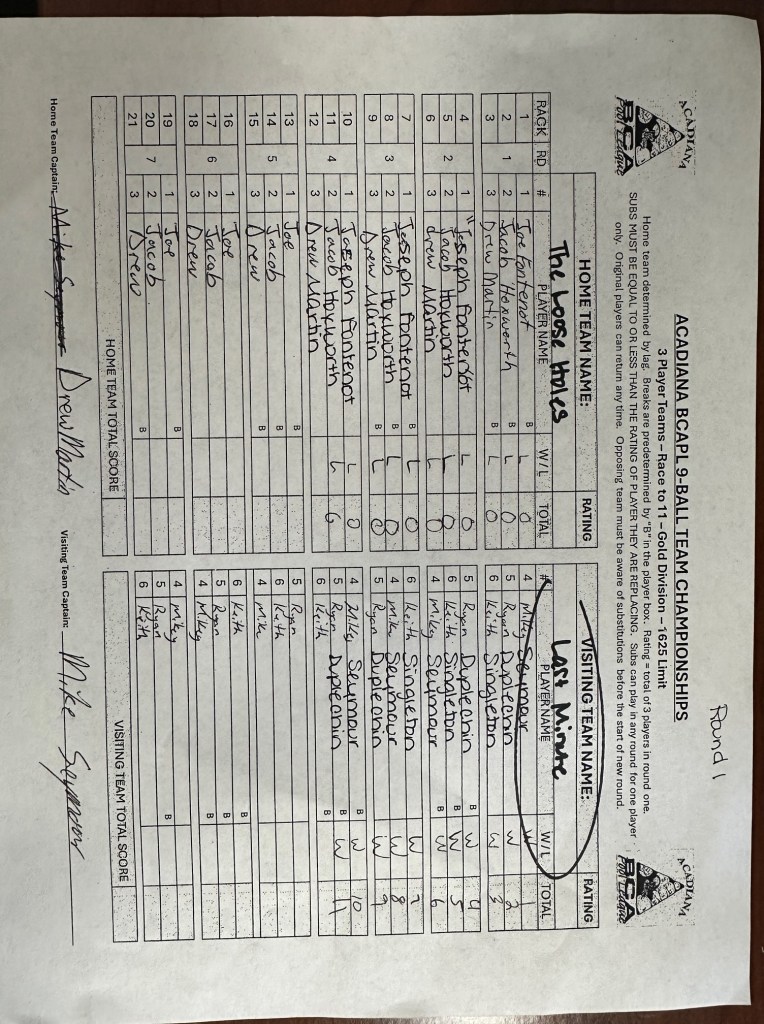 Round 1
ACADIANA BCA Pool League
ACADIANA BCAPL 9-BALL TEAM CHAMPIONSHIPS
ACADIANA BCA Pool League
3 Player Teams – Race to 11 – Gold Division – 1625 Limit
Home team determined by lag. Breaks are predetermined by "B" in the player box. Rating = total of 3 players in round one.
SUBS MUST BE EQUAL TO OR LESS THAN THE RATING OF PLAYER THEY ARE REPLACING. Subs can play in any round for one player
only. Original players can return any time. Opposing team must be aware of substitutions before the start of new round.
HOME TEAM NAME: RATING VISITING TEAM NAME: RATING
The Loose Holes Last Minute
RACK RD # PLAYER NAME W/L TOTAL # PLAYER NAME W/L TOTAL
1 1 Joe Fontenot B L 0 4 Mikey Seymour W 1
2 1 2 Jacob Hoxworth B L 0 5 Ryan Duplechin W 2
3 3 Drew Martin B L 0 6 Keith Singleton W 3
4 1 "Joseph Fontenot L 0 5 Ryan Duplechin B W 4
5 2 2 Jacob Hoxworth L 0 6 Keith Singleton B W 5
6 3 drew Martin L 0 4 Mikey Seymour B W 6
7 1 Joseph Fontenot B L 0 6 Keith Singleton W 7
8 3 2 Jacob Hoxworth B L 0 4 Mike Seymour W 8
9 3 Drew Martin B L 0 5 Ryan Duplechin W 9
10 1 Joseph Fontenot L 0 4 Mikey Seymour B W 10
11 4 2 Jacob Hoxworth L 0 5 Ryan Duplechin B W 11
12 3 Drew Martin 6 Keith B
13 1 Joe B 5 Ryan
14 5 2 Jacob B 6 Keith
15 3 Drew B 4 Mike
16 1 Joe 6 Keith B
17 6 2 Jacob 5 Ryan B
18 3 Drew 4 Mikey B
19 1 Joe B 4 Mikey B
20 7 2 Jacob 5 Ryan
21 3 Drew B 6 Keith
HOME TEAM TOTAL SCORE VISITING TEAM TOTAL SCORE
Home Team Captain: Mike Seymour Drew Martin Visiting Team Captain: Mike Seymour